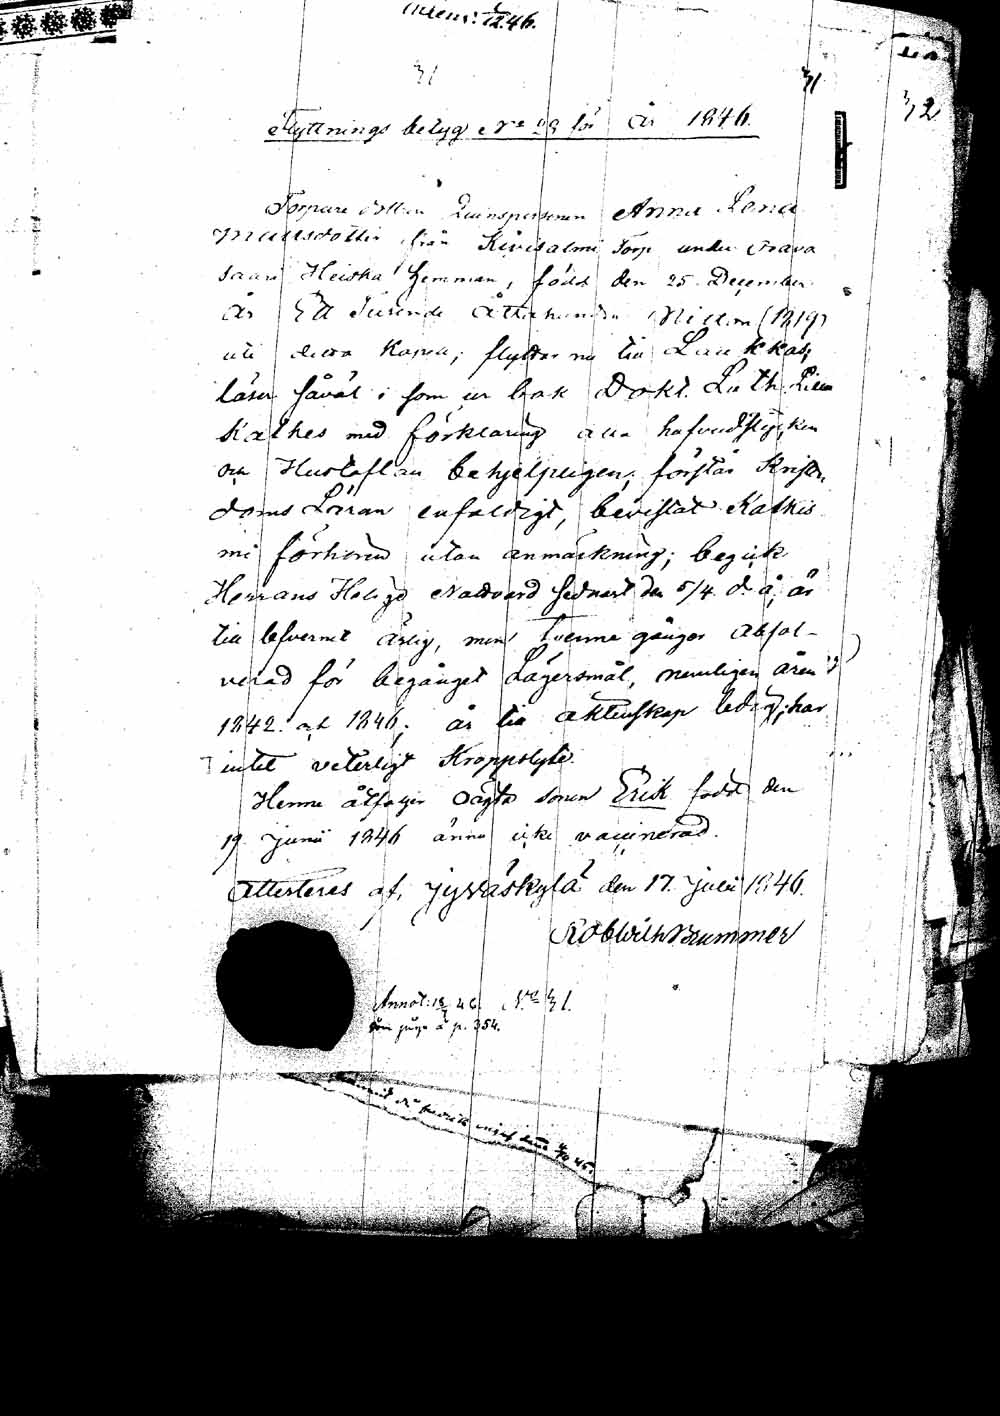 1/12 46.
71
71
72
Flyttnings betyg No 99 för år 1846.
Torpare dottren Qvinspersonen Anna Lena
Mattsdotter ifrån Kivisalmi Torp under Orava
saari Heiska hemman, född den 25 December
År Ett Tusende Åttahundra Nitton (1819)
uti detta Kapell, flyttar nu till Laukkas;
läser såväl i som ur bok Dokt. Luth. Lilla
Katkes med förklaring alla hufvudstycken
och Hustaflan behjelpligen; förstår Kristen
doms Läran enfaldigt, bevistat Katkis
mi förhören utan anmärkning; begick
Herrans Heliga Nattvard sednast den 5/4 d. å; är
till lefvernet ärlig, men tvenne gånger absol-
verad för begånget Lägersmål, nemligen åren
1842 och 1846; är till äktenskap ledig; har
intet veterligt Kroppslyte.
Henne åtföljer oägta sonen Erik född den
19 Junii 1846 ännu icke vaccinerad.
Attesteras af, Jyväskylä den 17. Julii 1846.
Rob Wilh Brummer
Annot: 18/7 46. No 71.
p. 354.